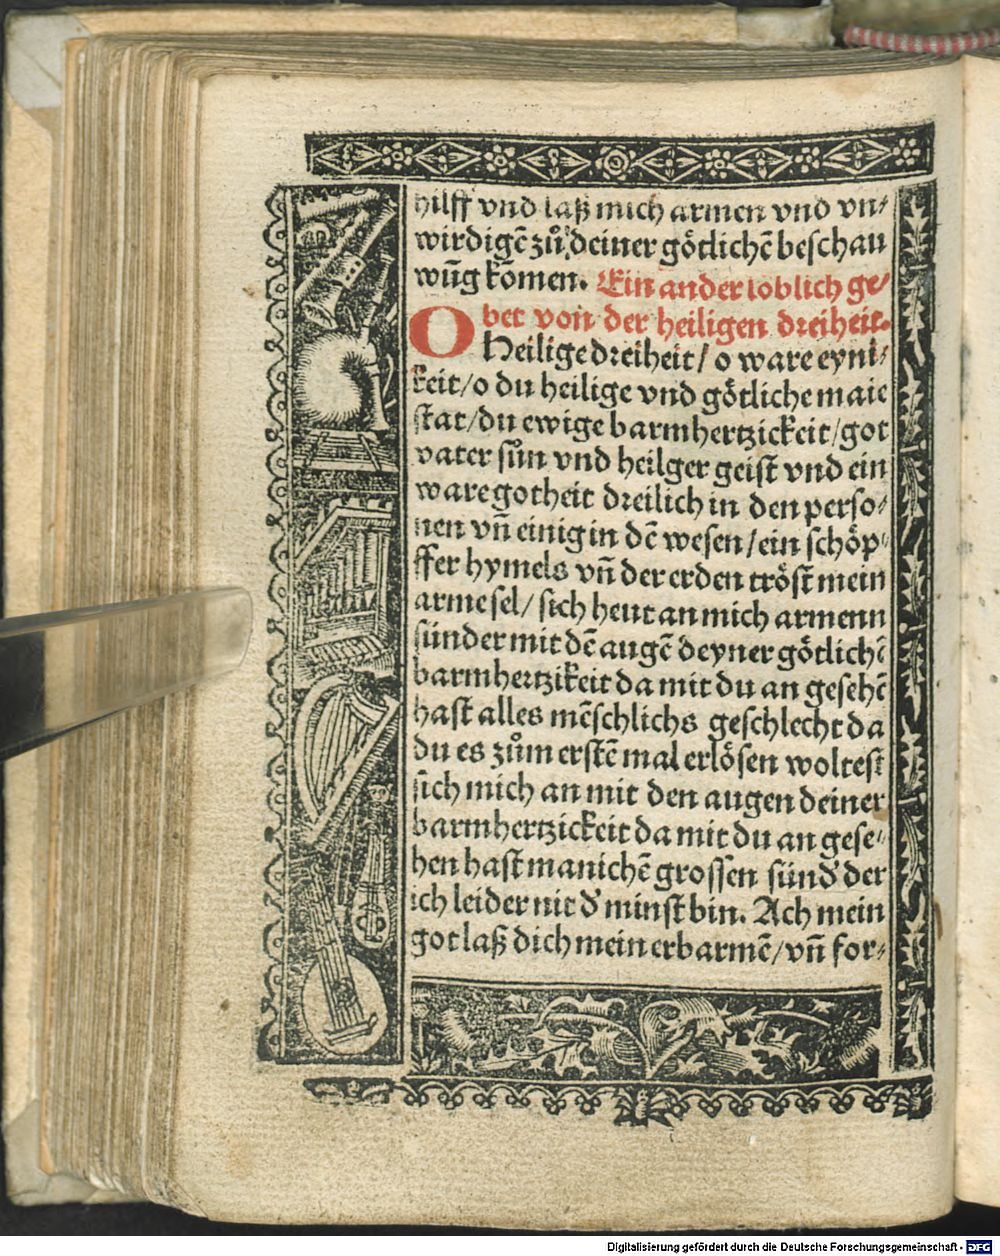 hilff vnd laß mich armen vnd vn⸗
wirdigē zů deiner götlichē beschau
wūg kōmen. Ein ander loblich ge⸗
bet von der heiligen dreiheit.
O Heilige dreiheit / o ware eyni⸗
keit / o du heilige vnd götliche maie
stat / du ewige barmhertzickeit / got
vater sůn vnd heilger geist vnd ein
ware gotheit dreilich in den perso⸗
nen vn̄ einig in dē wesen / ein schöp⸗
ffer hymels vn̄ der erden tröst mein
arme sel / sich heut an mich armenn
sünder mit dē augē deyner götlichē
barmhertzikeit da mit du an gesehē
hast alles mēschlichs geschlecht da
du es zům erstē mal erlösen woltest
sich mich an mit den augen deiner
barmhertzickeit da mit du an gese⸗
hen hast manichē grossen sünd' der
ich leider nit d' minst bin. Ach mein
got laß dich mein erbarmē / vn̄ for⸗
Digitalisierung gefördert durch die Deutsche Forschungsgemeinschaft - DFG